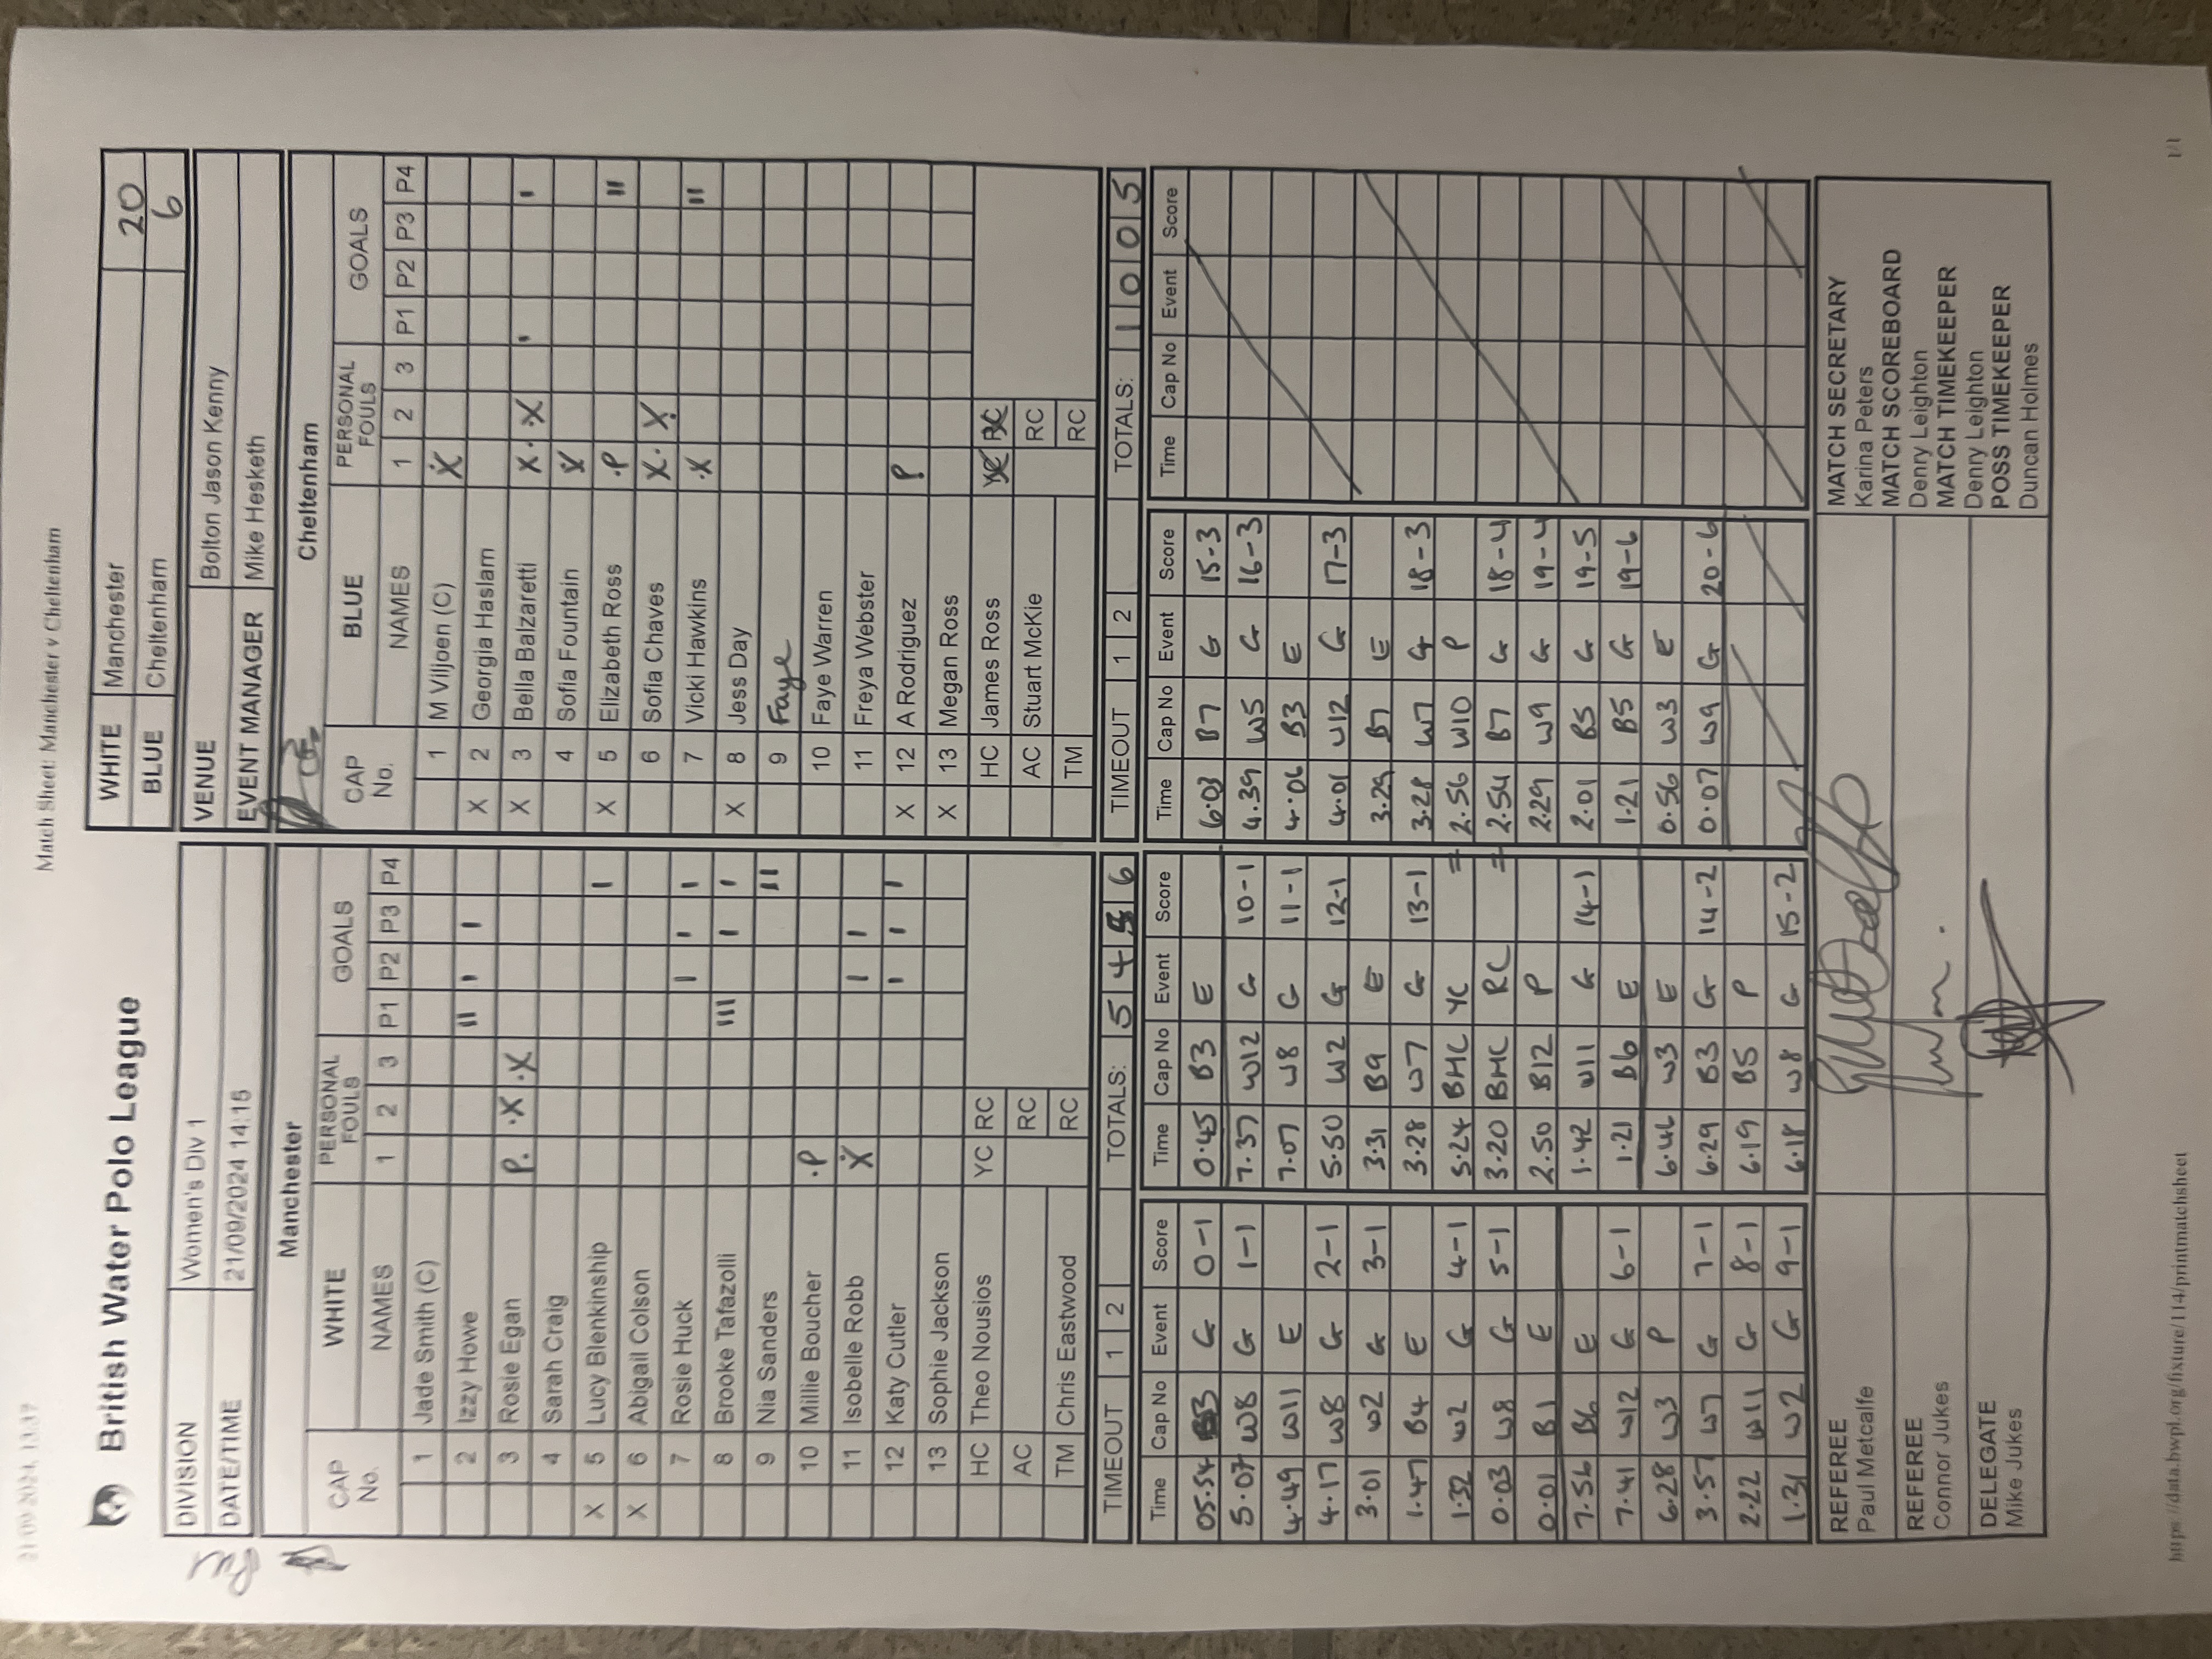 21/09/2024, 13:37
Match Sheet: Manchester v Cheltenham
British Water Polo League
DIVISION Women's Div 1
DATE/TIME 21/09/2024 14:15
WHITE Manchester 20
BLUE Cheltenham 6
VENUE Bolton Jason Kenny
EVENT MANAGER Mike Hesketh
Manchester
CAP No. WHITE NAMES PERSONAL FOULS 1 2 3 GOALS P1 P2 P3 P4
1 Jade Smith (C)
2 Izzy Howe II I I
3 Rosie Egan P. .X .X
4 Sarah Craig
X 5 Lucy Blenkinship I
X 6 Abigail Colson
7 Rosie Huck I I I
8 Brooke Tafazolli III I I
9 Nia Sanders II
10 Millie Boucher .P
11 Isobelle Robb X I I
12 Katy Cutler I I I
13 Sophie Jackson
HC Theo Nousios YC RC
AC RC
TM Chris Eastwood RC
TIMEOUT 1 2 TOTALS: 5 4 5 6
Cheltenham
CAP No. BLUE NAMES PERSONAL FOULS 1 2 3 GOALS P1 P2 P3 P4
1 M Viljoen (C) X
X 2 Georgia Haslam
X 3 Bella Balzaretti X. .X I I
4 Sofia Fountain X
X 5 Elizabeth Ross .P II
6 Sofia Chaves X. X.
7 Vicki Hawkins .X II
X 8 Jess Day
9 Faye
10 Faye Warren
11 Freya Webster
X 12 A Rodriguez P
X 13 Megan Ross
HC James Ross YC RC
AC Stuart McKie RC
TM RC
TIMEOUT 1 2 TOTALS: 1 0 0 5
Time Cap No Event Score
05.54 B3 G 0-1
5.07 W8 G 1-1
4.49 W11 E
4.17 W8 G 2-1
3.01 W2 G 3-1
1.47 B4 E
1.32 W2 G 4-1
0.03 W8 G 5-1
0.01 B1 E
7.56 B6 E
7.41 W12 G 6-1
6.28 W3 P
3.57 W7 G 7-1
2.22 W11 G 8-1
1.31 W2 G 9-1
Time Cap No Event Score
0.45 B3 E
7.37 W12 G 10-1
7.07 W8 G 11-1
5.50 W2 G 12-1
3.31 B9 E
3.28 W7 G 13-1
3.24 BHC YC =
3.20 BHC RC =
2.50 B12 P
1.42 W11 G 14-1
1.21 B6 E
6.46 W3 E
6.29 B3 G 14-2
6.19 B5 P
6.18 W8 G 15-2
Time Cap No Event Score
6.03 B7 G 15-3
4.39 W5 G 16-3
4.06 B3 E
4.01 W12 G 17-3
3.29 B7 E
3.28 W7 G 18-3
2.56 W10 P
2.54 B7 G 18-4
2.29 W9 G 19-4
2.01 B5 G 19-5
1.21 B5 G 19-6
0.56 W3 E
0.07 W9 G 20-6
Time Cap No Event Score
REFEREE
Paul Metcalfe
REFEREE
Connor Jukes
DELEGATE
Mike Jukes
MATCH SECRETARY
Karina Peters
MATCH SCOREBOARD
Denry Leighton
MATCH TIMEKEEPER
Denry Leighton
POSS TIMEKEEPER
Duncan Holmes
https://data.bwpl.org/fixture/114/printmatchsheet
1/1